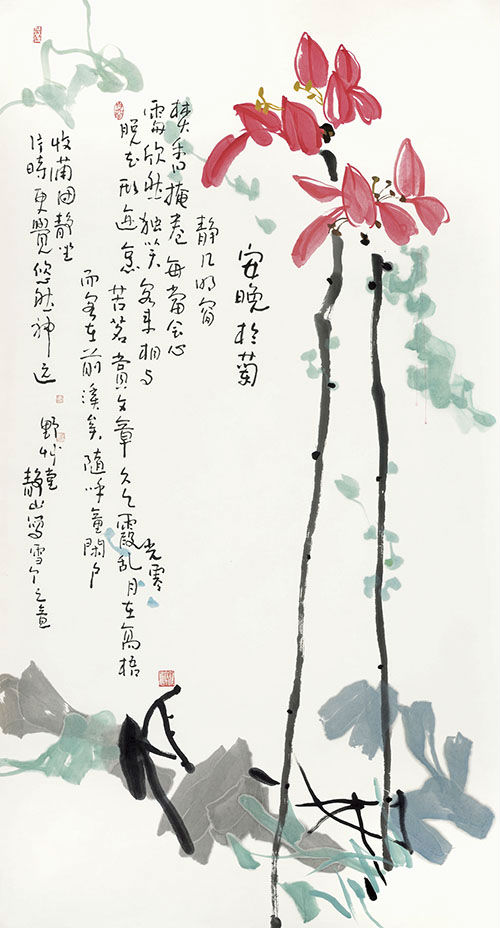 安晚於菊
静几明窗
焚香掩卷每當會心
處欣然独笑客来相与
脱去形迹烹苦茗賞文章久之霞乱月在高梧
光零
而客在前溪矣随呼童閉户
收蒲团静坐
片時更覺悠然神远
野竹堂静山写雪个之意